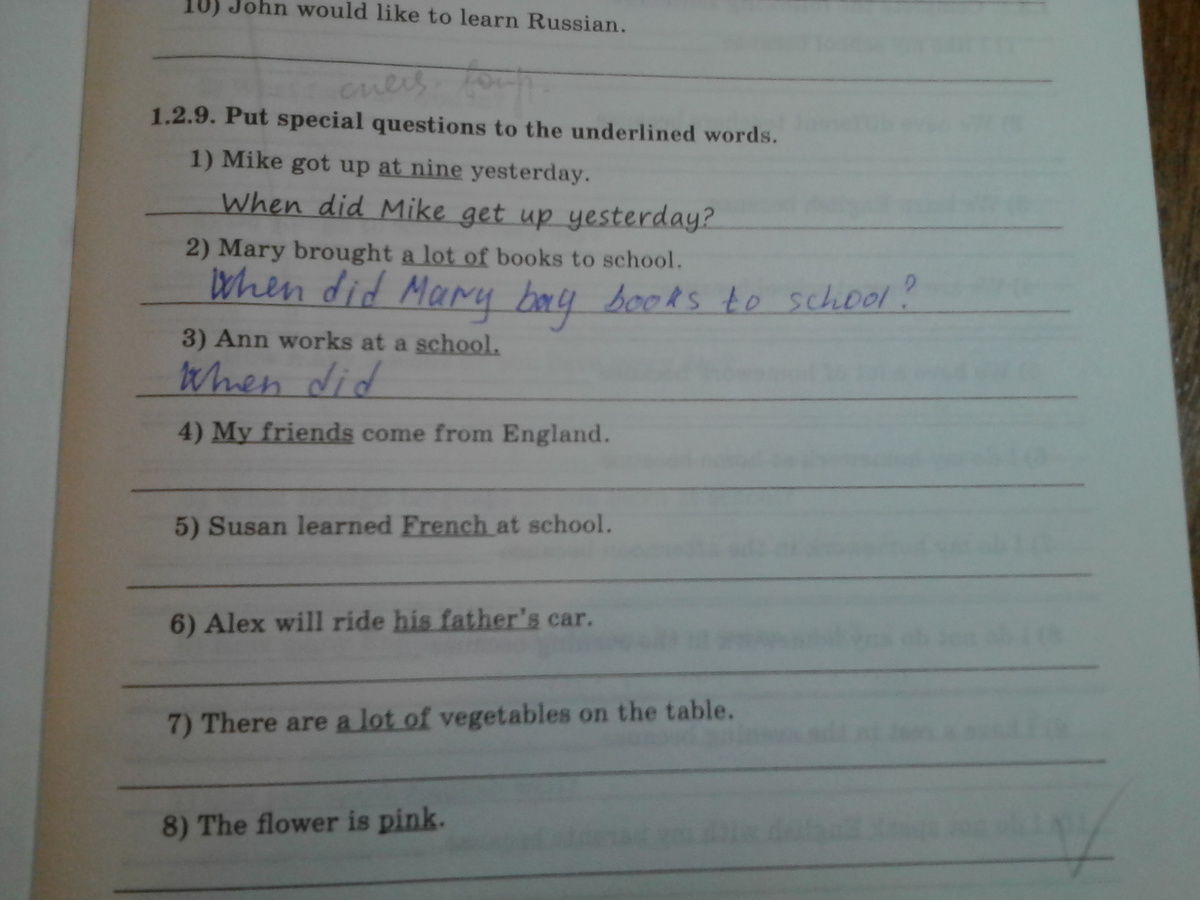 10) John would like to learn Russian.
1.2.9. Put special questions to the underlined words.
1) Mike got up at nine yesterday.
When did Mike get up yesterday?
2) Mary brought a lot of books to school.
When did Mary bay books to school?
3) Ann works at a school.
When did
4) My friends come from England.
5) Susan learned French at school.
6) Alex will ride his father's car.
7) There are a lot of vegetables on the table.
8) The flower is pink.